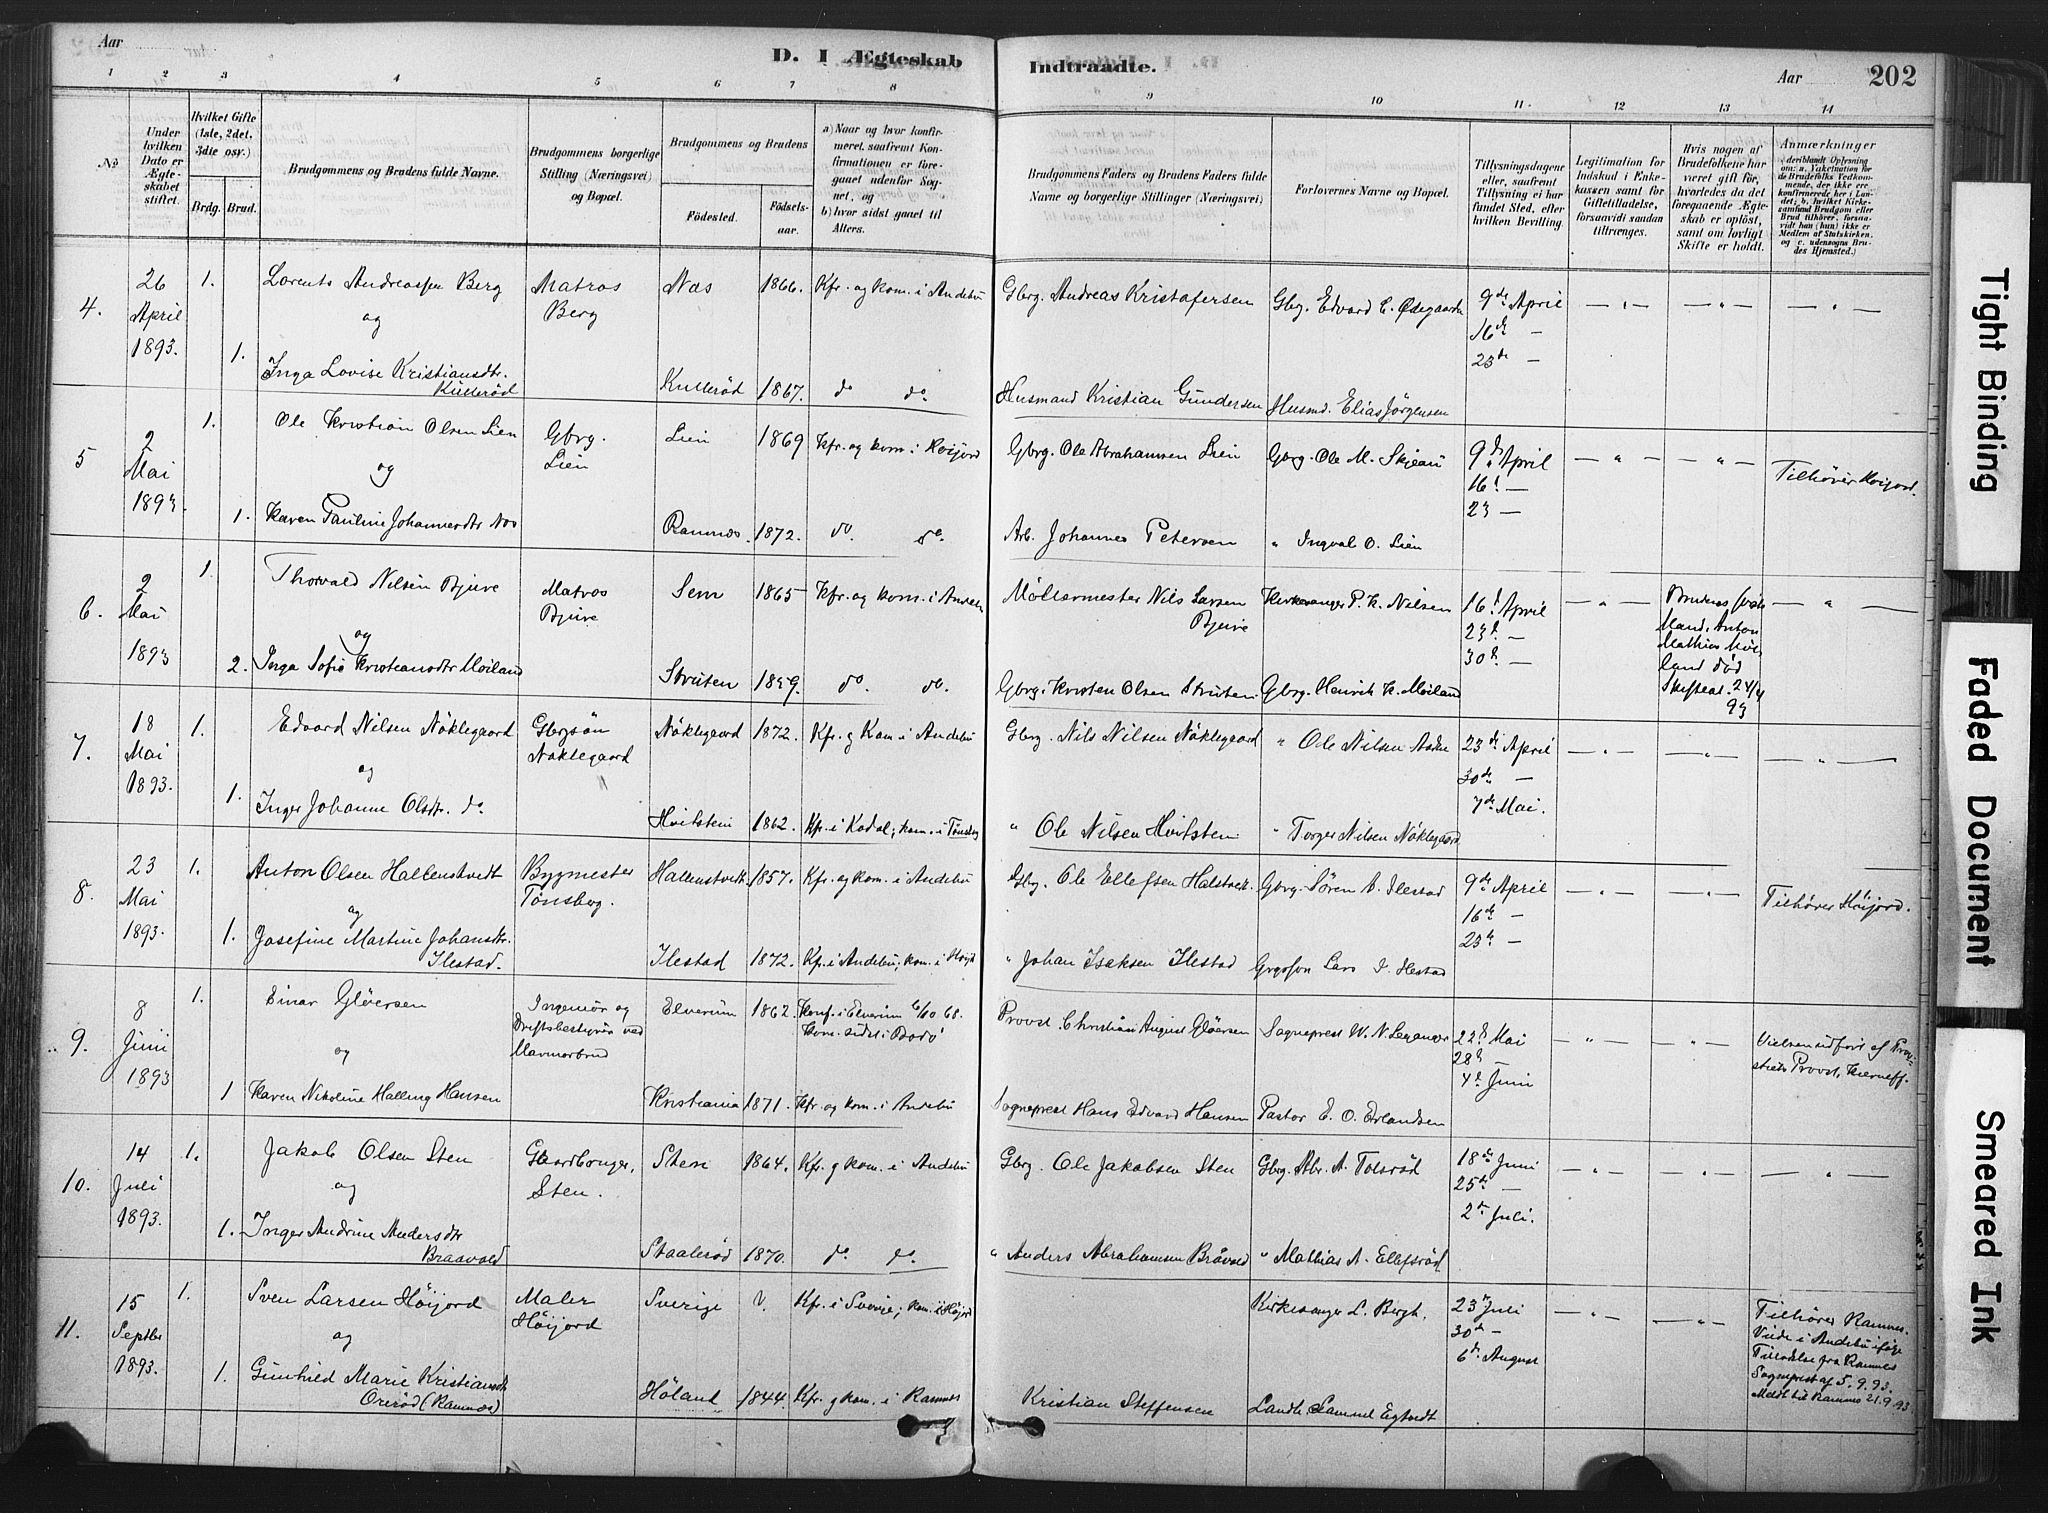 Aar
D. I Ægteskab
Indtraadte.
Aar
202
1 2 3 4 5 6 7 8 9 10 11 12 13 14
No
Under hvilken Dato er Ægteskabet stiftet.
Hvilket Gifte (1ste, 2det, 3die osv.)
Brdg. Brud.
Brudgommens og Brudens fulde Navne.
Brudgommens borgerlige Stilling (Næringsvei) og Bopæl.
Brudgommens og Brudens
Fødested.
Fødselsaar.
a) Naar og hvor konfirmeret, saafremt Konfirmationen er foregaaet udenfor Sognet, og
b) hvor sidst gaaet til Alters.
Brudgommens Faders og Brudens Faders fulde Navne og borgerlige Stillinger (Næringsvei)
Forlovernes Navne og Bopæl.
Tillysningsdagene eller, saafremt Tillysning ei har fundet Sted, efter hvilken Bevilling.
Legitimation for Indskud i Enkekassen samt for Giftetilladelse, forsaavidt saadan tiltrænges.
Hvis nogen af Brudefolkene har været gift før, hvorledes da det foregaaende Ægteskab er opløst, samt om lovligt Skifte er holdt.
Anmærkninger
4. 26 April 1893. 1. Lorents Andreassen Berg
Matros Berg
Næs 1866. Kfr. og kom. i Andebu
Gbrg. Andreas Kristofersen
Gbrg. Edvard C. Ødegaarden
9de April 16de — 23de —
og
1. Inga Lovise Kristiansdtr. Kullerød
Kullerød 1867. do do.
Husmand Kristian Gundersen
Husmd. Elias Jørgensen
5 2 Mai 1893. 1. Ole Kristian Olsen Lien
Gbrg. Lien
Lien 1869 Kfr. og kom. i Høijord
Gbrg. Ole Abrahamsen Lien
Gbrg. Ole M. Skjeau
9d. April 16d — 23 —
Tilhører Høijord.
og
1. Karen Pauline Johannesdtr Nes
Ramnæs. 1872. do. do.
Arb. Johannes Petersen
" Ingval O. Lien
6. 2 Mai 1893 1. Thorvald Nilsen Bjuve
Matros Bjuve
Sem 1865 Kfr. og kom. i Andebu
Møllermester Nils Larsen Bjuve
Kirkesanger P. K. Nilsen
16d April 23d. — 30d. —
Brudens første Mand, Anton Mathias Møiland død Skifteat. 24/4 93
og
2. Inga Sofie Kristiansdtr Møiland
Struten 1859. do. do.
Gbrg. Kristen Olsen Struten
Gbrg. Henrik K. Møiland
7. 18 Mai 1893. 1. Edvard Nilsen Nøklegaard
Gbrgsøn Nøklegaard
Nøklegaard 1872. Kfr. g kom. i Andebu
Gbrg. Nils Nilsen Nøklegaard
" Ole Nilsen Askje
23de April 30de — 7de Mai.
og
1. Inger Johanne Olsdtr. do.
Hvitstein 1862. Kfr. i Kodal; kom. i Tønsbg
" Ole Nilsen Hvitsten
" Torger Nilsen Nøklegaard
8. 23 Mai 1893. 1. Anton Olsen Hallenstvedt
Bygmester Tønsberg.
Hallenstvedt 1857. Kfr. og kom. i Andebu
Gbrg. Ole Ellefsen Halstvedt
Gbrg. Søren A. Ilestad
9de April 16de — 23de —
Tilhører Høijord.
og
1. Josefine Martine Johansdtr. Ilestad.
Ilestad 1872. Kfr. i Andebu; kom. i Høijd
" Johan Isaksen Ilestad
Gbrgsøn Lars J. Ilestad
9. 8 Juni 1893 1. Einar Gløersen
Ingeniør og Driftsbestyrer ved Marmorbrud
Elverum 1862 Konf. i Elverum 6/10 68. Kom. sidst i Bodø
Provst Christian August Gløersen
Sogneprest W. N. Leganger
22d Mai 28d — 4d Juni
Vielsen udført af Provstiets Provst Kierulff.
og
1 Karen Nikoline Halling Hansen
Kristiania 1871. Kfr og kom. i Andebu
Sogneprest Hans Edvard Hansen
Pastor E. O. Erlandsen
10. 14 Juli 1893. 1. Jakob Olsen Sten
Gaardbruger, Sten.
Sten 1864. Kfr. g kom. i Andebu
Gbrg. Ole Jakobsen Sten
Gbrg. Abr. A. Tolsrød
18de Juni 25de — 2de Juli.
og
1. Inger Andrine Andersdtr Braavold
Staalerød 1870. do do.
" Anders Abrahamsen Bråvold
" Mathias A. Ellefsrød
11. 15 Septbr 1893. 1. Sven Larsen Høijord
Maler Høijord
Sverige ?. Kfr. i Sverige; kom. i Høijord
Kirkesanger L. Bergh.
23de Juli 30de — 6de August
Tilhører Ramnes. Viede i Andebu ifølge Tilladelse fra Ramnes Sogneprest af 5.9.93. Meldt til Ramnes 21.9.93.
og
1. Gunhild Marie Kristiansdtr Orerød (Ramnæs)
Høland 1844. Kfr. g kom. i Ramnes
Kristian Steffensen
Landh. Samuel Egtvedt
Tight Binding
Faded Document
Smeared Ink